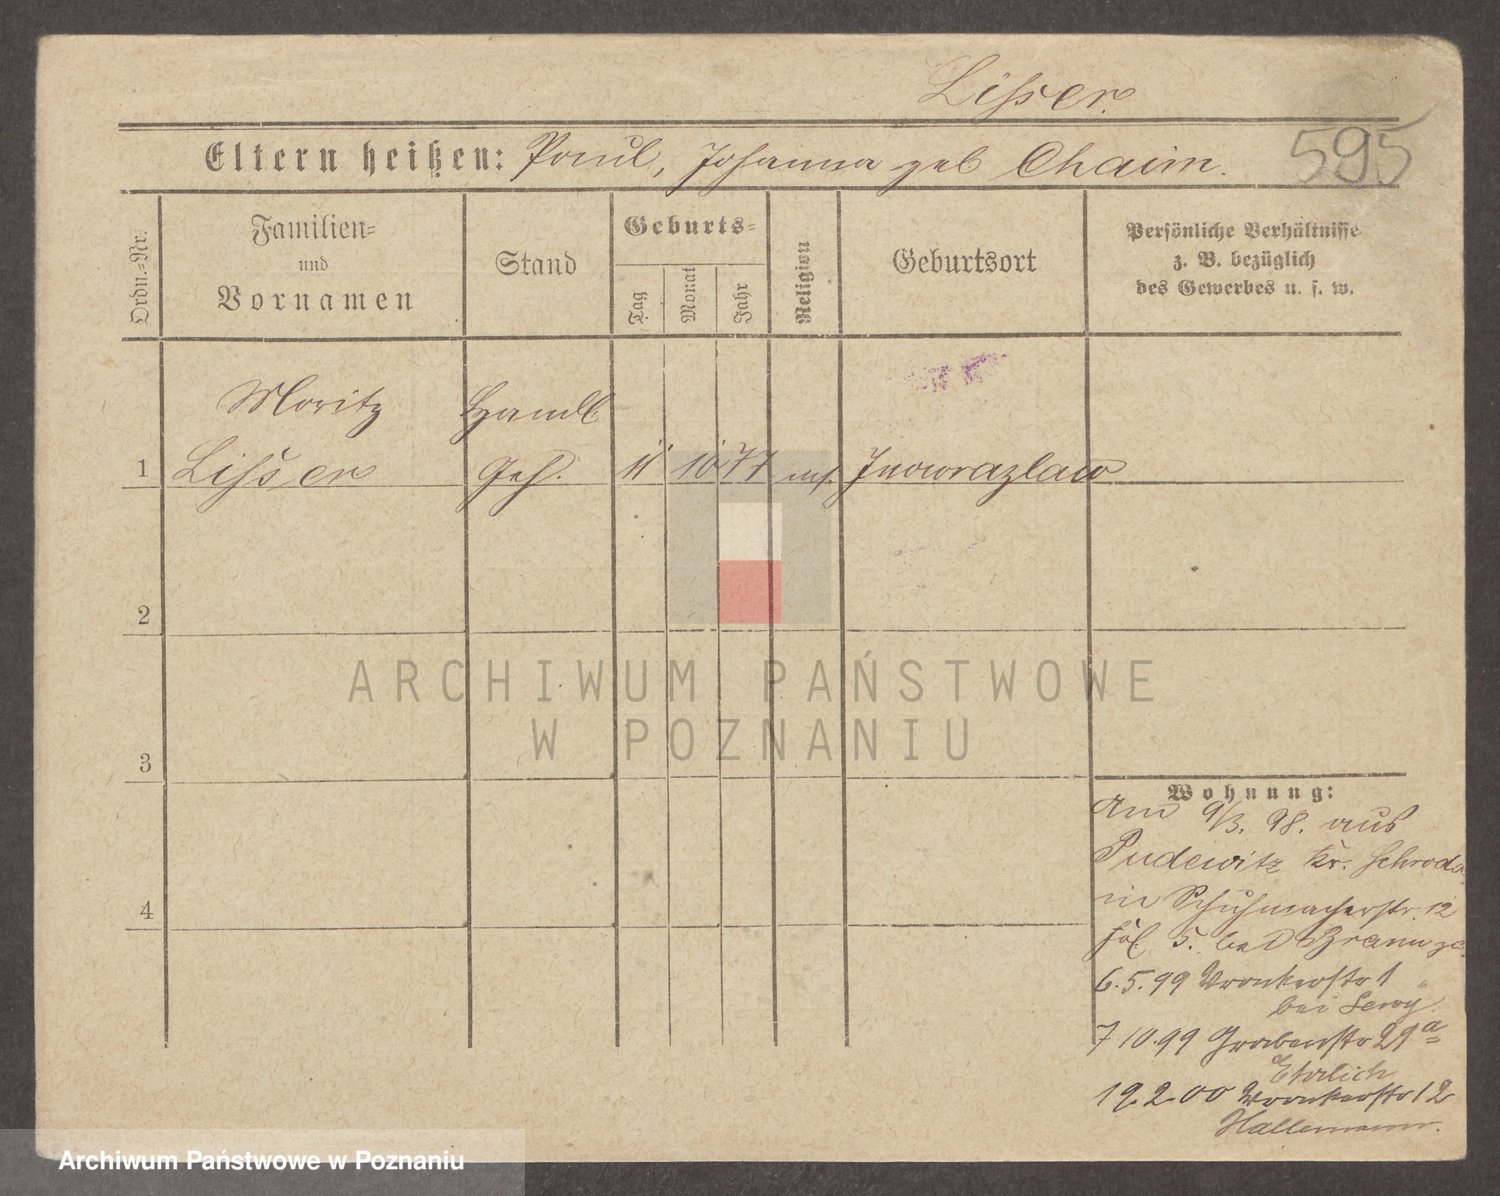 Lißer.
595
Eltern heißen: Paul, Johanna geb Chaim.
Ordn.-Nr.
Familien-
und
Vornamen
Stand
Geburts-
Tag
Monat
Jahr
Religion
Geburtsort
Persönliche Verhältnisse
z. B. bezüglich
des Gewerbes u. s. w.
Moritz Handl
1 Lißer Geh. 11 10 77 mos. Inowrazlaw
2
ARCHIWUM PAŃSTWOWE
W POZNANIU
3
Wohnung:
Am 9/3. 98. aus
Pudewitz Kr. Schroda
in Schuhmacherstr. 12
bei
4
6.5.99 Wronkerstr 1
bei Lewy
7 10.99 Grabenstr 29a
Ehrlich
19.2.00 Wronkerstr 12
Hallemann.
Archiwum Państwowe w Poznaniu